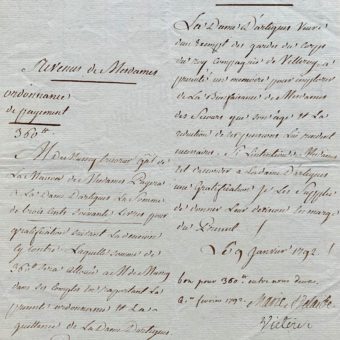 Revenus de Mesdames
ordonnance
de payement
360ᵗᵗ
M. de                              gñl de
La Maison de Mesdames Payera
a La Dame Dartigues La Somme
de trois Cents Soixante Livres pour
gratification Suivant La decision
cy contre Laquelle Somme de
360ᵗᵗ Sera allouée a M. de
dans Ses Comptes En rapportant La
presente ordonnance et La
quittance de La Dame Dartigues.
La Dame Dartigues Veuve
d'un Exempt des gardes du Corps
du Roy Compagnie de Villeroy a
presenté un memoire pour implorer
de La Bienfaisance de Mesdames
des Secours que Son âge et La
reduction de ses pensions Lui rendent
necessaires. Si L'intention de Mesdames
est d'accorder a La dame Dartigues
une gratification je Les Supplie
de donner Leur decision En marge
du present.
Le 9 Janvier 1792.
bon pour 360ᵗᵗ entre nous deux.
Ce 1ᵉʳ fevrier 1792 Marie Adelaide
Victoire